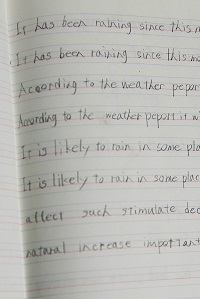 It has been raining since this m
It has been raining since this mo
According to the weather pepor
According to the weather peport it w
It is likely to rain in some pla
It is likely to rain in some plac
affect such stimulate dec
natural increase important